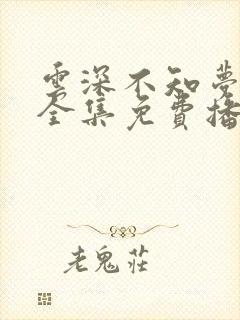 雲深不知夢
全集免費播
老鬼莊